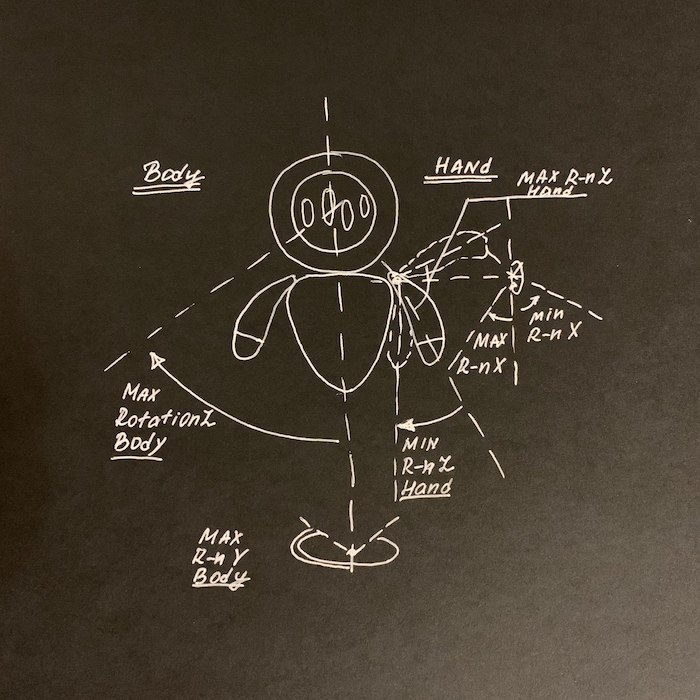 Body
HAND
MAX R-n Z
Hand
MIN
R-n X
MAX
R-n X
MAX
RotationZ
BODY
MIN
R-n Z
Hand
MAX
R-n Y
Body